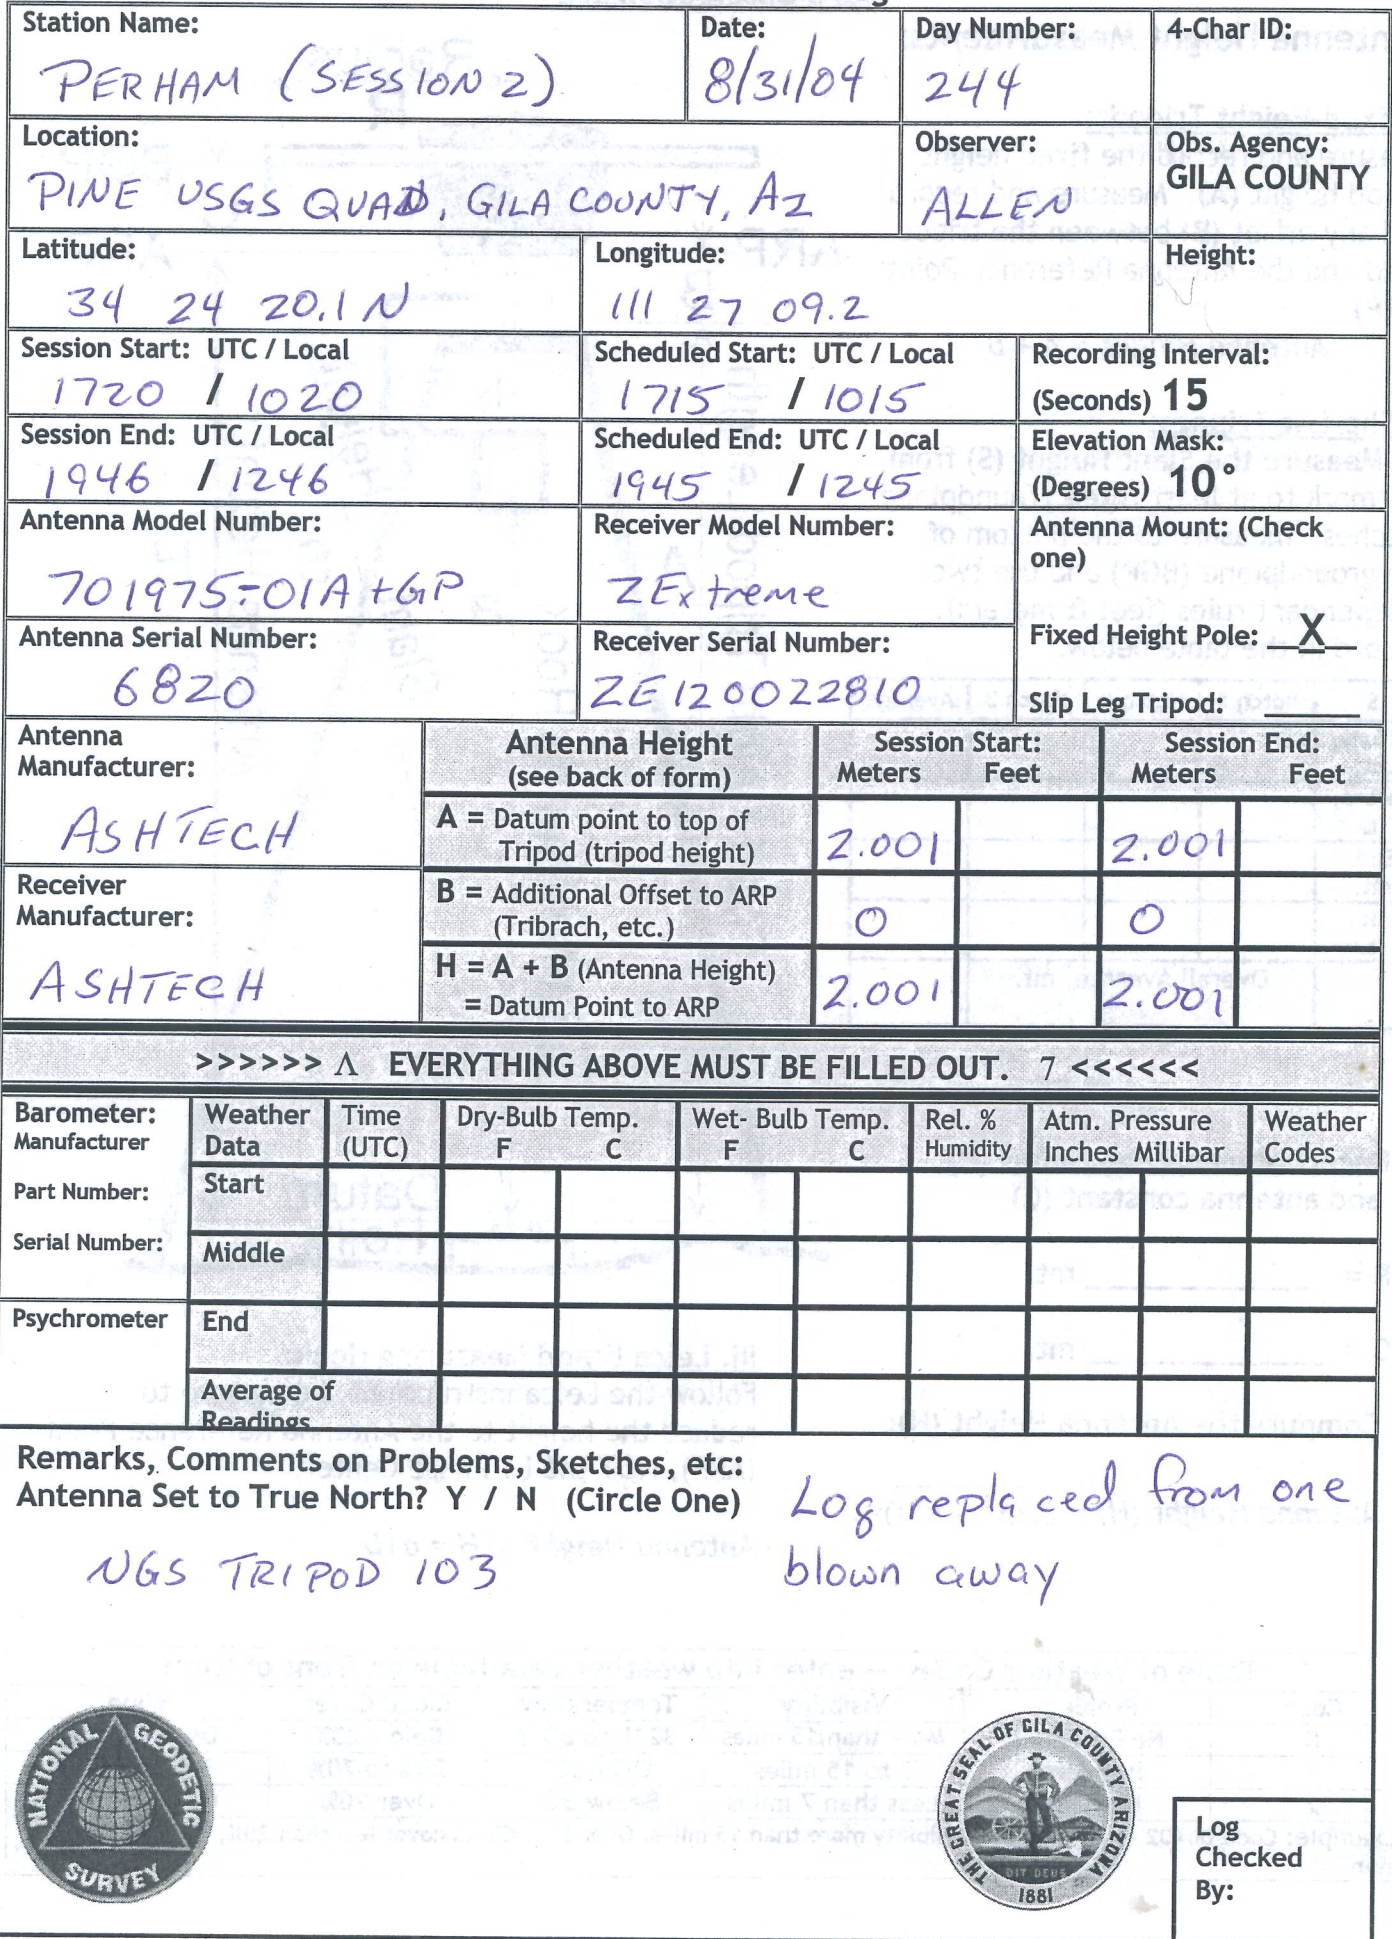 Station Name:
PERHAM (SESSION 2)
Date:
8/31/04
Day Number:
244
4-Char ID:
Location:
PINE USGS QUAD, GILA COUNTY, AZ
Observer:
ALLEN
Obs. Agency:
GILA COUNTY
Latitude:
34 24 20.1 N
Longitude:
111 27 09.2
Height:
Session Start: UTC / Local
1720 / 1020
Scheduled Start: UTC / Local
1715 / 1015
Recording Interval:
(Seconds) 15
Session End: UTC / Local
1946 / 1246
Scheduled End: UTC / Local
1945 / 1245
Elevation Mask:
(Degrees) 10°
Antenna Model Number:
701975-01A+GP
Receiver Model Number:
ZExtreme
Antenna Mount: (Check
one)
Fixed Height Pole: X
Slip Leg Tripod:
Antenna Serial Number:
6820
Receiver Serial Number:
ZE120022810
Antenna
Manufacturer:
ASHTECH
Receiver
Manufacturer:
ASHTECH
Antenna Height
(see back of form)
Session Start:
Meters Feet
Session End:
Meters Feet
A = Datum point to top of
Tripod (tripod height)
2.001 2.001
B = Additional Offset to ARP
(Tribrach, etc.)
0 0
H = A + B (Antenna Height)
= Datum Point to ARP
2.001 2.001
>>>>>> Λ EVERYTHING ABOVE MUST BE FILLED OUT. 7 <<<<<<
Barometer:
Manufacturer
Part Number:
Serial Number:
Psychrometer
Weather
Data
Time
(UTC)
Dry-Bulb Temp.
F C
Wet- Bulb Temp.
F C
Rel. %
Humidity
Atm. Pressure
Inches Millibar
Weather
Codes
Start
Middle
End
Average of
Readings
Remarks, Comments on Problems, Sketches, etc:
Antenna Set to True North? Y / N (Circle One)
Log replaced from one
blown away
NGS TRIPOD 103
NATIONAL GEODETIC SURVEY
THE GREAT SEAL OF GILA COUNTY ARIZONA
DIT DEUS
1881
Log
Checked
By: